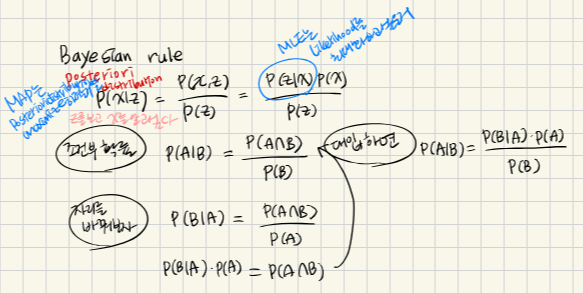 Bayesian rule
MLE는 Likelihood를 최대화하는것
MAP는 Posteriori distribution을 maximize
Posteriori distribution
P(x|z) = P(x,z) / P(z) = P(z|x) P(x) / P(z)
z를보고 x를
조건부 확률 P(A|B) = P(A∩B) / P(B) 대입하면 P(A|B) = P(B|A)·P(A) / P(B)
자리를 바꿔보자 P(B|A) = P(A∩B) / P(A)
P(B|A)·P(A) = P(A∩B)